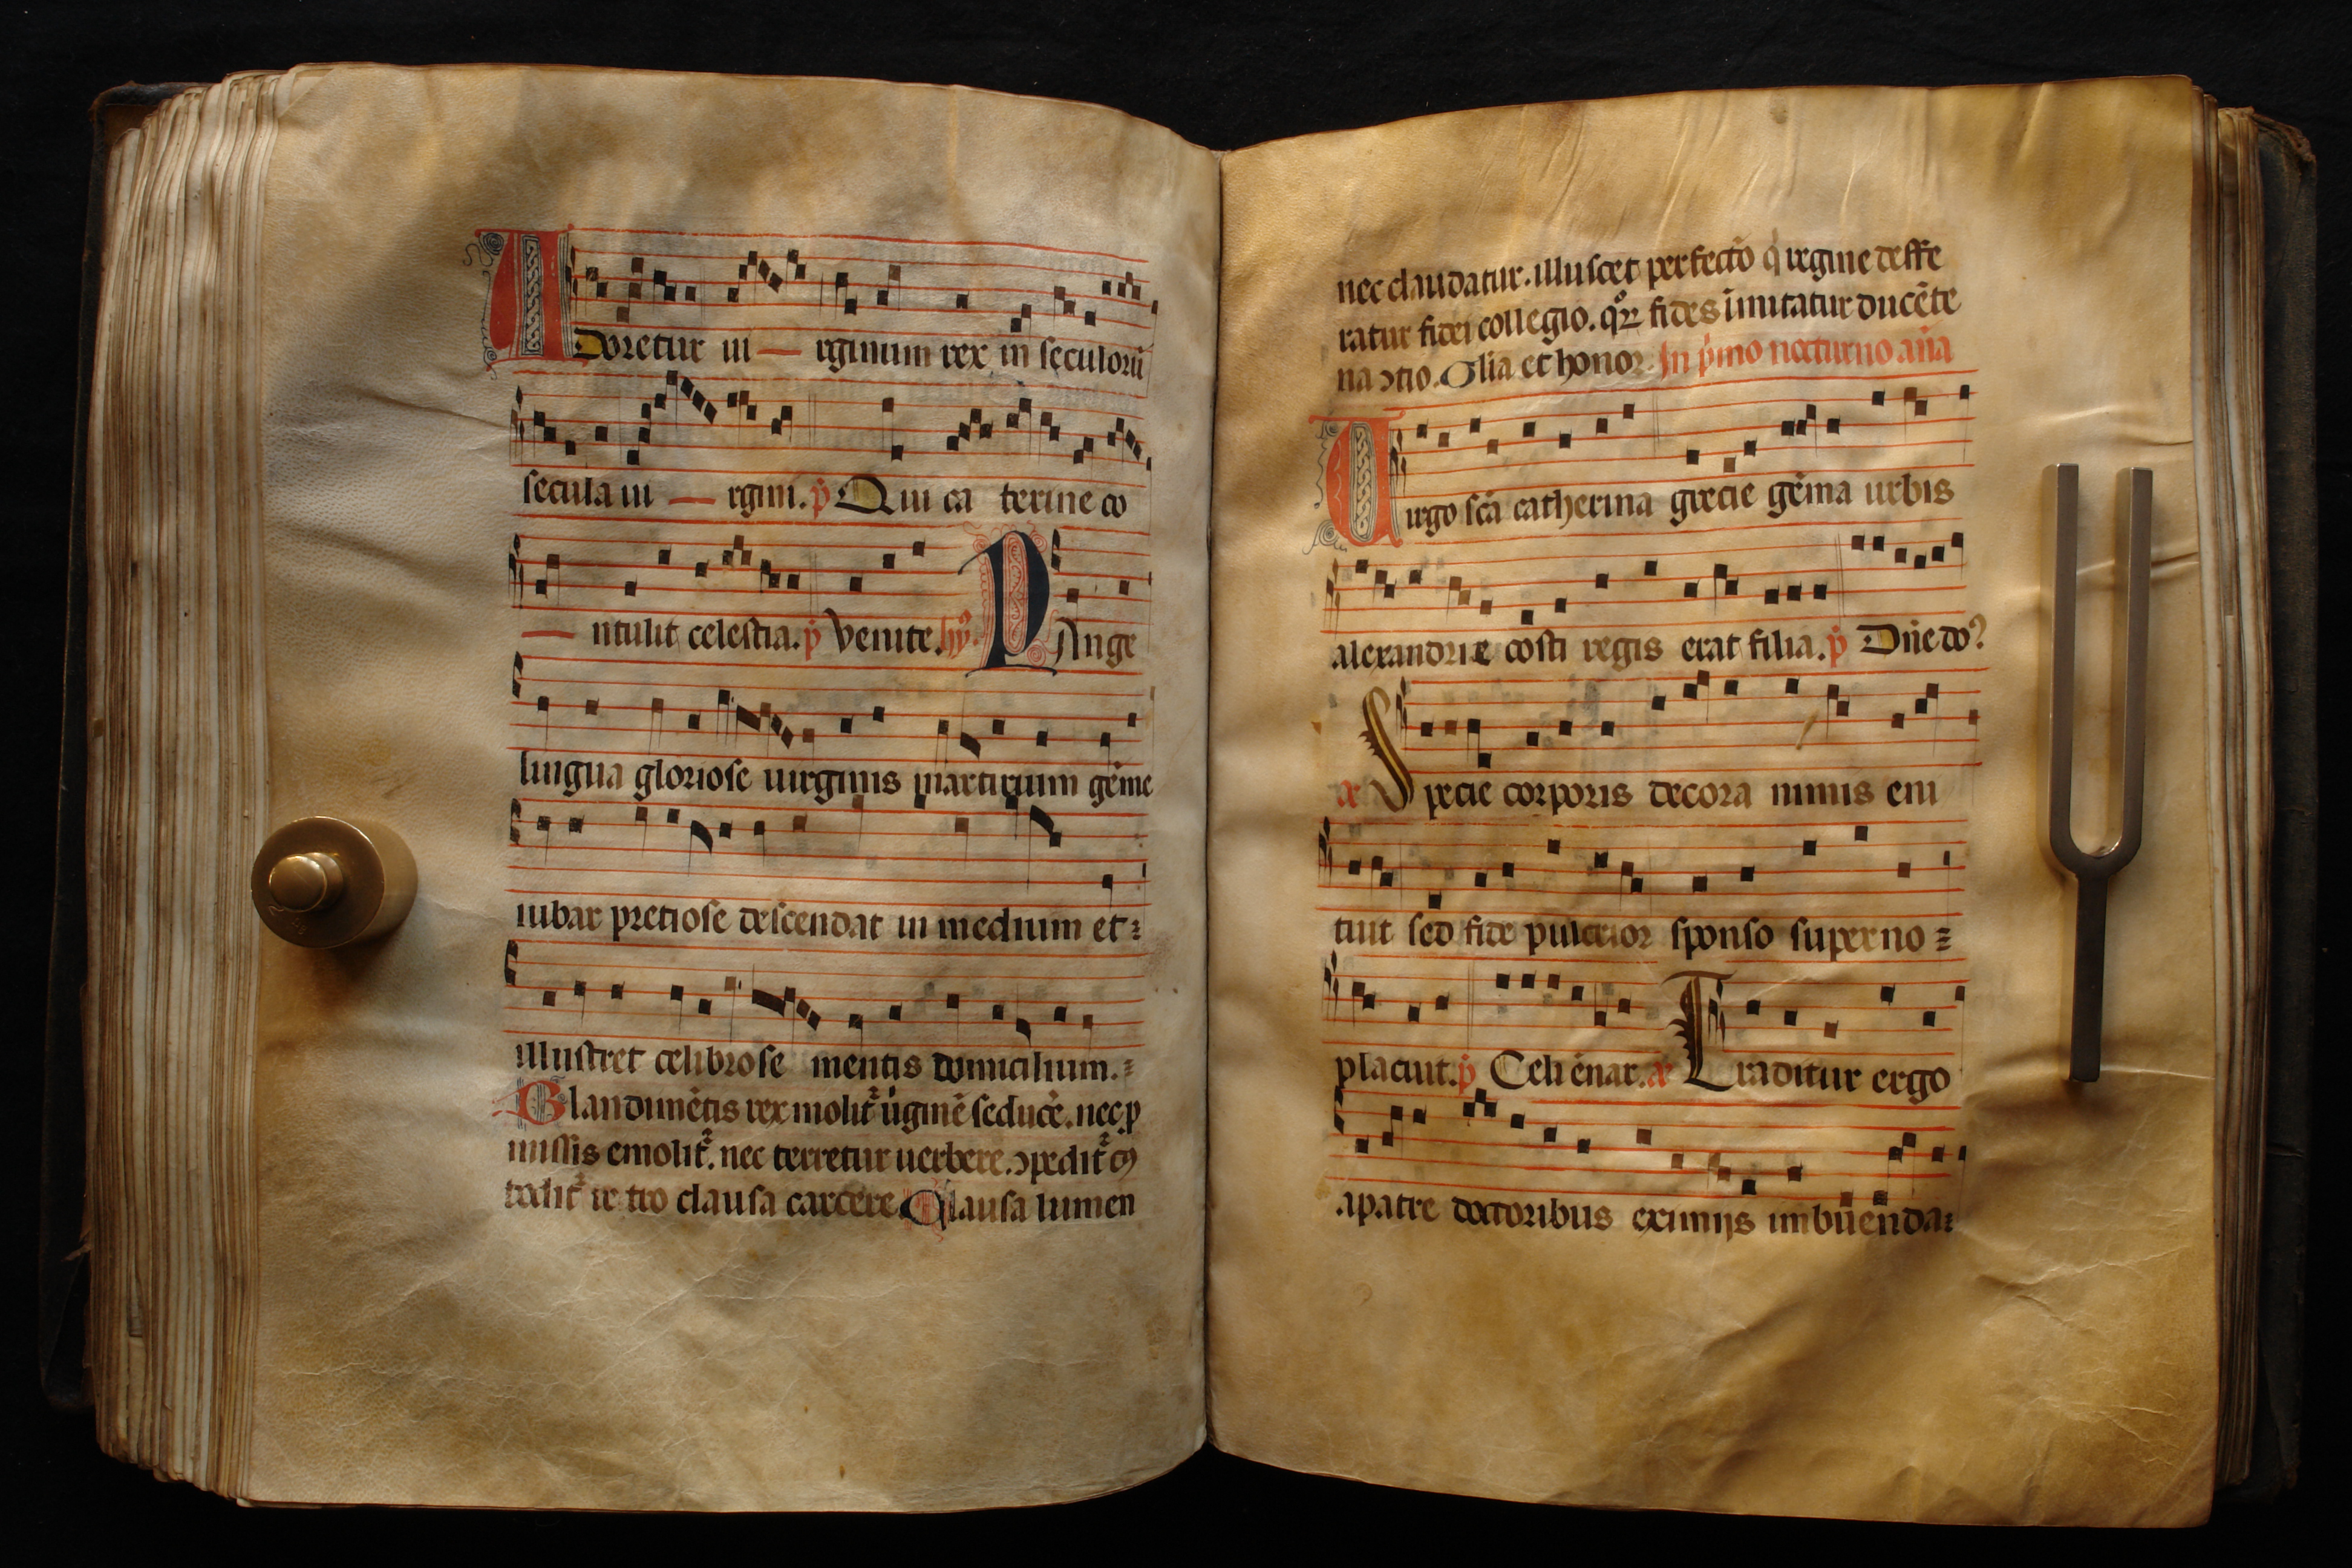 Adoretur ui — rginum rex in seculorū
secula ui — rgini. p̄ Qui ca terine co
— ntulit celestia. p̄ Venite. hȳ. PAnge
lingua gloriose uirginis martirium gēme
iubar pretiose descendat in medium et:
illustret celibrose mentis domicilium.:
Blandimētis rex molit᷑ úginē seducē. nec ꝓ
missis emolit᷑. nec terretur uerbere. ꝯpedit᷑
clausa carcere. Clausa lumen
nec claudatur. illuscet perfectō q̇ regine deffe
ratur fidei collegio. qͦꝝ fides īmitatur ducēte
na ꝯtio. Glīa et honor. In p̄mo nocturno añа
Uirgo sc̄a catherina grecie gēma urbis
alexandrie cōsti regis erat filia. p̄ Dn̄e do?
æ Specie corporis decora nimis eni
tuit sed fide pulcrior sponso superno =
placuit. p̄ Celi ēnar. æ Traditur ergo
apatre doctoribus eximijs imbuenda: